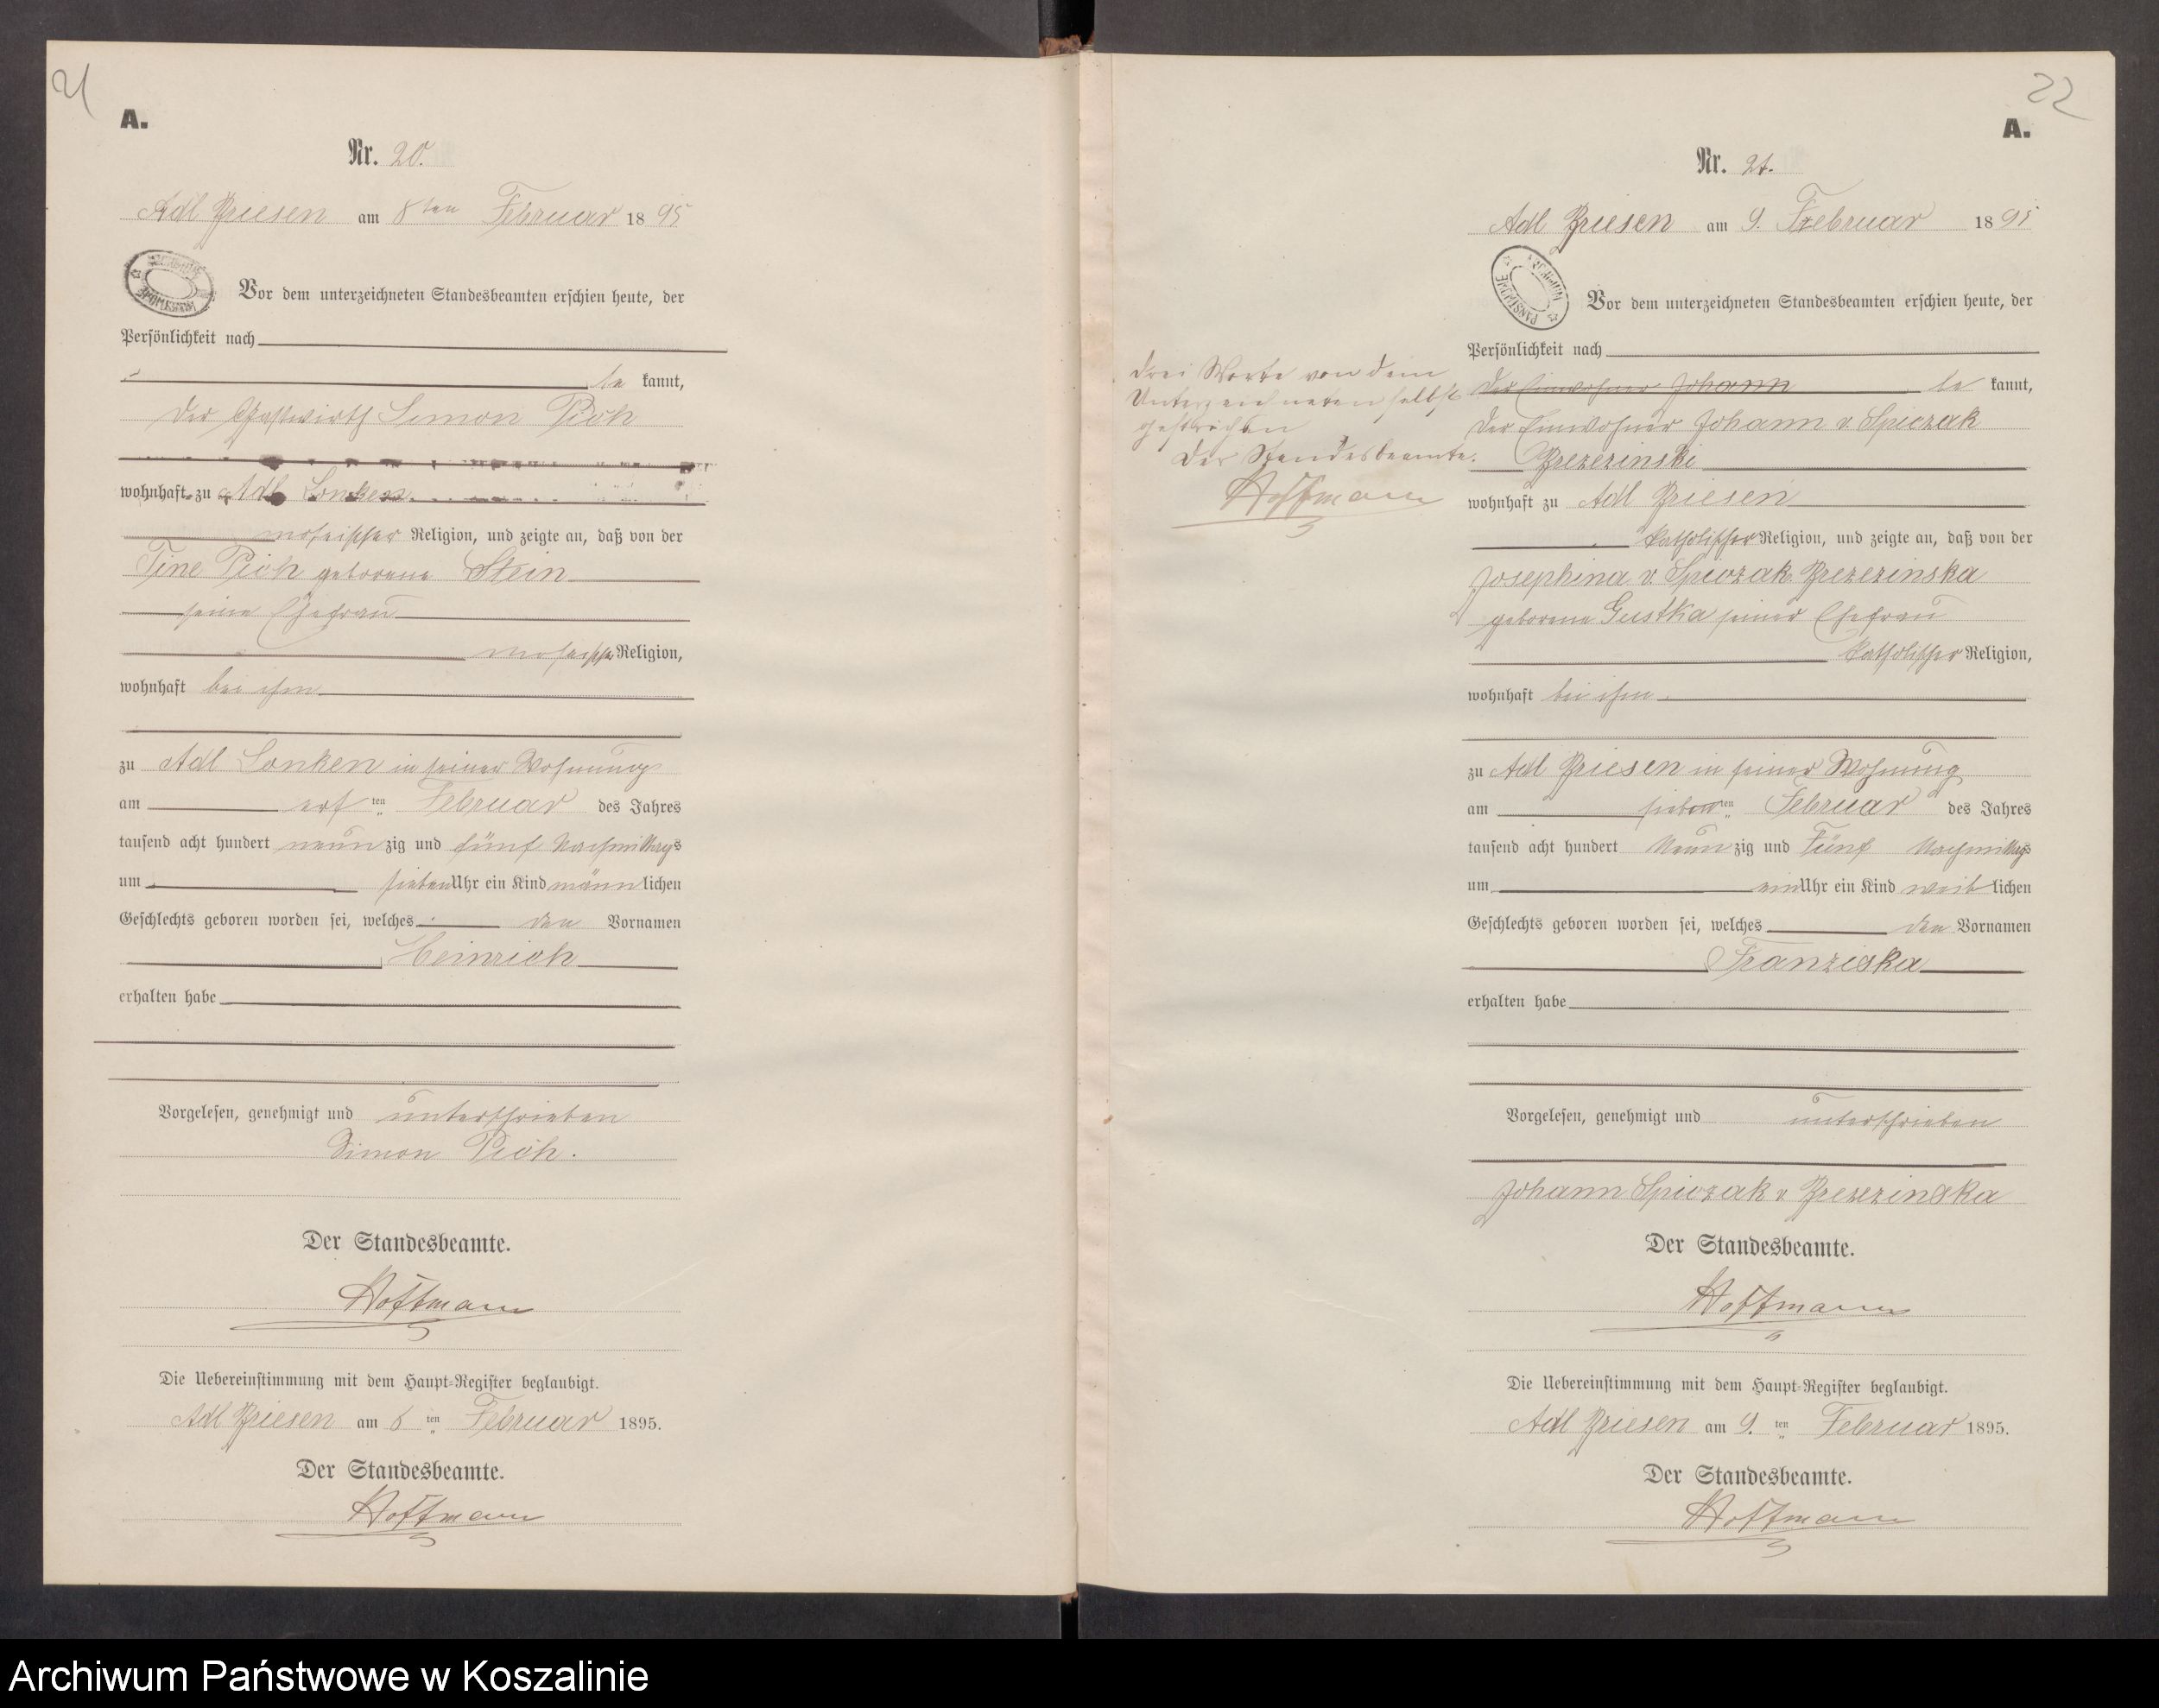 21
A.
Nr. 20.
Adl Briesen am 8ten Februar 1895
Vor dem unterzeichneten Standesbeamten erschien heute, der
Persönlichkeit nach
be kannt,
der Gastwirth Simon Pich
wohnhaft zu Adl Lonken
mosaischer Religion, und zeigte an, daß von der
Tine Pich geborene Stein
seine Ehefrau
mosaischer Religion,
wohnhaft bei ihm
zu Adl Lonken in seiner Wohnung
am ten Februar des Jahres
tausend acht hundert neunzig und fünf Nachmittags
um sieben Uhr ein Kind männlichen
Geschlechts geboren worden sei, welches den Vornamen
Heinrich
erhalten habe
Vorgelesen, genehmigt und unterschrieben
Simon Pich.
Der Standesbeamte.
Hoffmann
Die Uebereinstimmung mit dem Haupt-Register beglaubigt.
Adl Briesen am 8 ten Februar 1895.
Der Standesbeamte.
Hoffmann
22
A.
Nr. 21.
Adl Briesen am 9. Februar 1895
ARCHIWUM PAŃSTWOWE
Vor dem unterzeichneten Standesbeamten erschien heute, der
Persönlichkeit nach
der Einwohner Johann be kannt,
der Einwohner Johann v. Spiczak
Brezezinski
wohnhaft zu Adl Briesen
katholischer Religion, und zeigte an, daß von der
Josephina v. Spiczak Brezezinska
geborene Gustka seiner Ehefrau
katholischer Religion,
wohnhaft bei ihm
zu Adl Briesen in seiner Wohnung
am sieben ten Februar des Jahres
tausend acht hundert Neunzig und Fünf Nachmittags
um ein Uhr ein Kind weiblichen
Geschlechts geboren worden sei, welches den Vornamen
Franziska
erhalten habe
Vorgelesen, genehmigt und unterschrieben
Johann Spiczak v Brezezinska
Der Standesbeamte.
Hoffmann
Die Uebereinstimmung mit dem Haupt-Register beglaubigt.
Adl Briesen am 9. ten Februar 1895.
Der Standesbeamte.
Hoffmann
drei Worte von dem
Unterzeichneten selbst
gestrichen
Der Standesbeamte.
Hoffmann
Archiwum Państwowe w Koszalinie